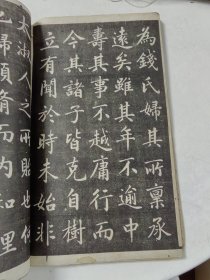 為錢氏婦其所稟承
遠矣雖其年不逾中
壽其事不越庸行而
今其諸子皆克自樹
立有聞於時未始非
太淑人之所貽也係